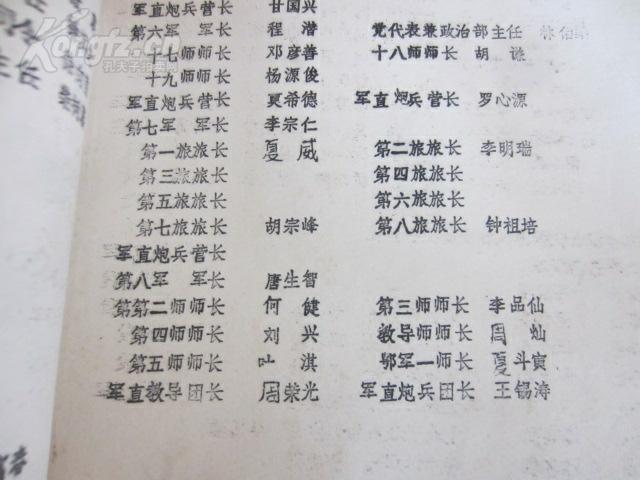 军直炮兵营长 甘国兴
第六军 军长 程潜 党代表兼政治部主任 林伯
十七师师长 邓彦善 十八师师长 胡谦
十九师师长 杨源俊
军直炮兵营长 莫希德 军直炮兵营长 罗心源
第七军 军长 李宗仁
第一旅旅长 夏威 第二旅旅长 李明瑞
第三旅旅长 第四旅旅长
第五旅旅长 第六旅旅长
第七旅旅长 胡宗峰 第八旅旅长 钟祖培
军直炮兵营长
第八军 军长 唐生智
第第二师师长 何健 第三师师长 李品仙
第四师师长 刘兴 教导师师长 周灿
第五师师长 叶淇 鄂军一师长 夏斗寅
军直教导团长 周荣光 军直炮兵团长 王锡涛